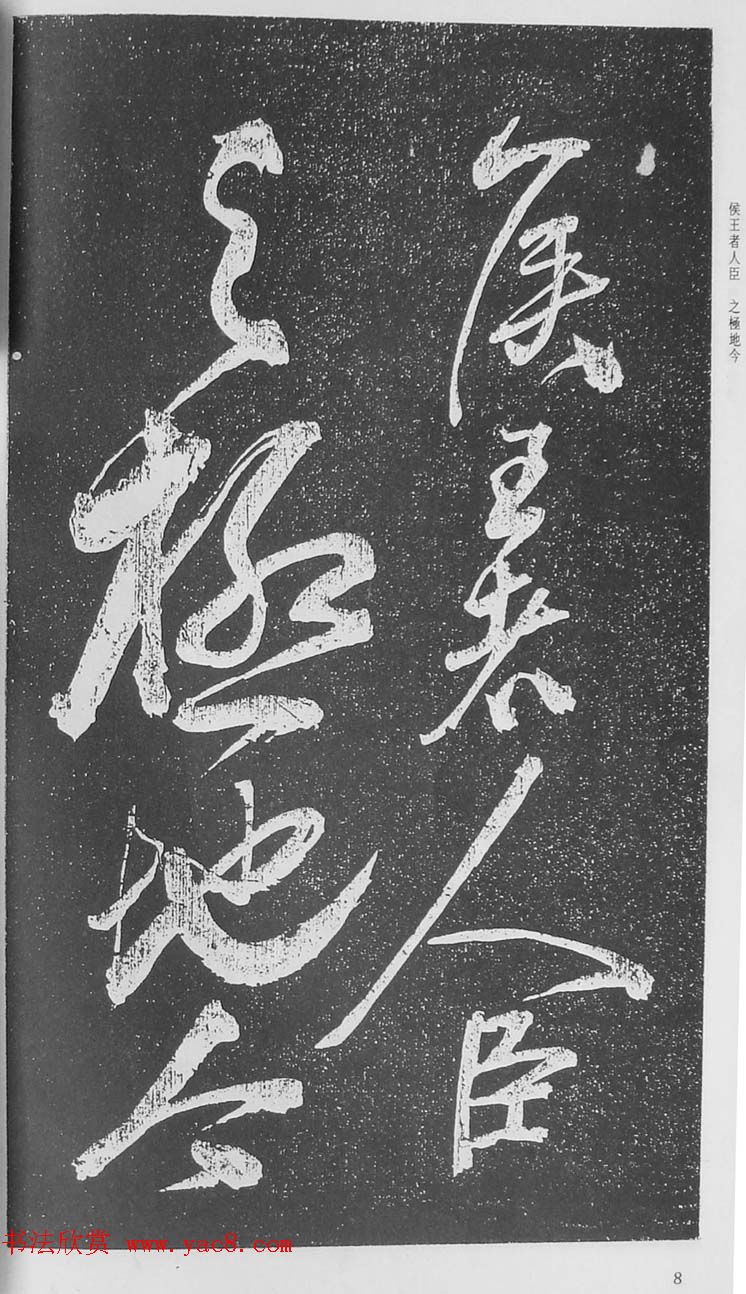 侯王者人臣
之極地今
侯王者人臣 之極地今
书法欣赏 www.yac8.com
8